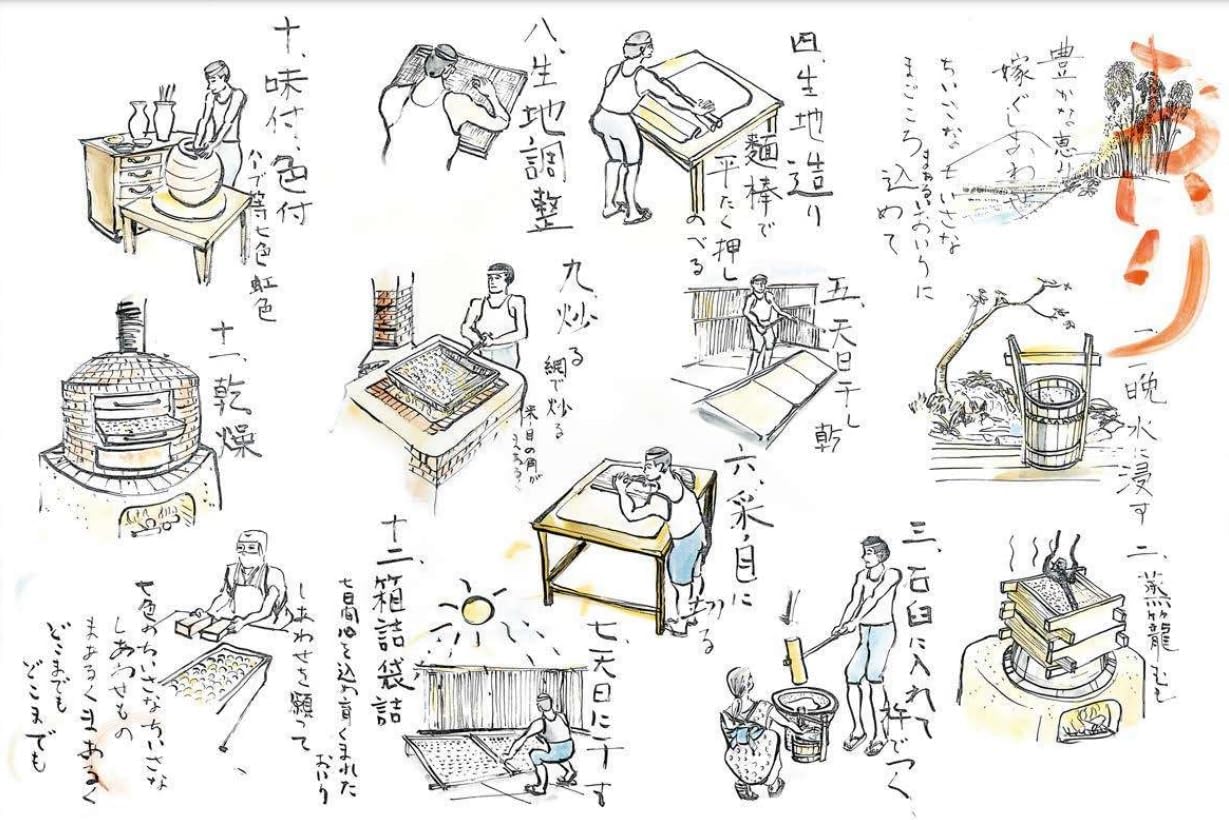 おいり
豊かな恵み
嫁ぐしあわせ
ちいさなちいさな
まあるいおいりに
まごころ込めて
一、一晩水に浸す
二、蒸篭むし
三、石臼に入れて
杵でつく
四、生地造り
麺棒で
平たく押し
のべる
五、天日干し
乾
六、采ノ目に
切る
七、天日に干す
八、生地調整
九、炒る
網で炒る
十、味付、色付
七色虹色
十一、乾燥
十二、箱詰袋詰
七日間心を込め育くまれた
おいり
しあわせを願って
七色のちいさなちいさな
しあわせもの
まあるくまあるく
どこまでも
どこまでも